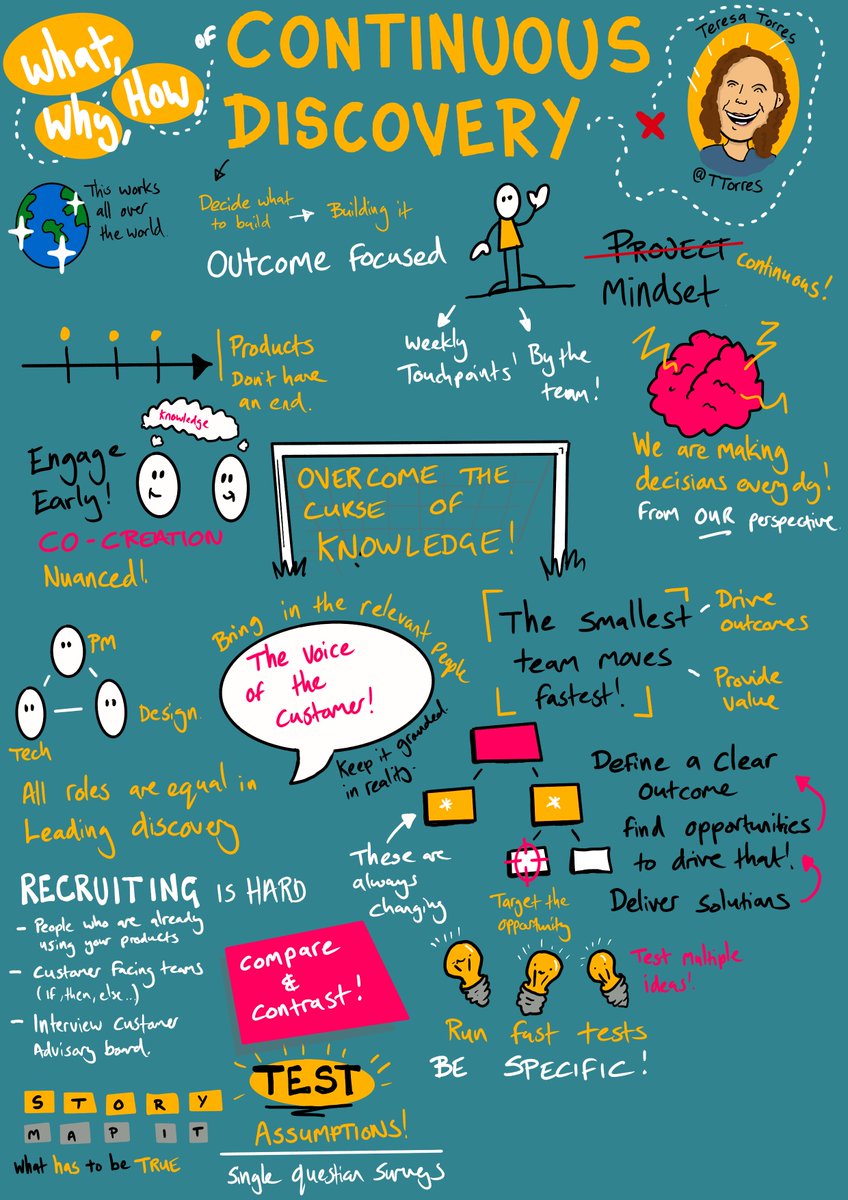 What,
Why,
How,
of
CONTINUOUS
DISCOVERY
x
Teresa Torres
@TTorres
This works
all over
the world.
Decide what
to build
Building it
Outcome Focused
PROJECT
continuous!
Mindset
Products
Don't have
an end.
Weekly
Touchpoints!
By the
team!
Knowledge
Engage
Early!
CO-CREATION
Nuanced!
OVERCOME THE
CURSE OF
KNOWLEDGE!
We are making
decisions everyday!
From OUR perspective.
PM
Design
Tech
All roles are equal in
Leading discovery
Bring in the relevant People
The Voice
of the
Customer!
Keep it grounded
in reality.
The smallest
team moves
fastest!
Drive
outcomes
Provide
value
These are
always
changing
Target the
opportunity
Define a clear
outcome
find opportunities
to drive that!
Deliver solutions
RECRUITING is HARD
- People who are already
using your products
- Customer Facing teams
(if, then, else...)
- Interview Customer
Advisory board.
Compare
&
Contrast!
Test multiple
ideas!
Run fast tests
BE SPECIFIC!
STORY
MAP IT
what has to be TRUE
TEST
ASSUMPTIONS!
Single question surveys